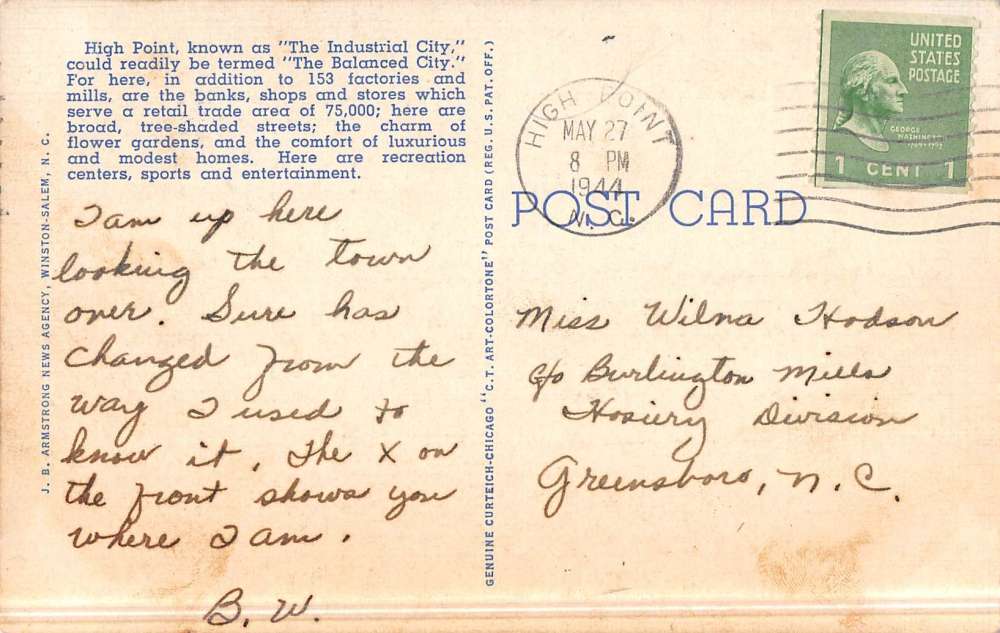 High Point, known as "The Industrial City,"
could readily be termed "The Balanced City."
For here, in addition to 153 factories and
mills, are the banks, shops and stores which
serve a retail trade area of 75,000; here are
broad, tree-shaded streets; the charm of
flower gardens, and the comfort of luxurious
and modest homes. Here are recreation
centers, sports and entertainment.
I am up here
looking the town
over. Sure has
changed from the
way I used to
know it. The X on
the front shows you
where I am.
B. W.
J. B. ARMSTRONG NEWS AGENCY, WINSTON-SALEM, N. C.
GENUINE CURTEICH-CHICAGO "C.T. ART-COLORTONE" POST CARD (REG. U.S. PAT. OFF.)
HIGH POINT
MAY 27
8 PM
1944
N.C.
POST CARD
UNITED
STATES
POSTAGE
GEORGE
WASHINGTON
1 CENT 1
Miss Wilma Hodson
c/o Burlington Mills
Hosiery Division
Greensboro, N. C.